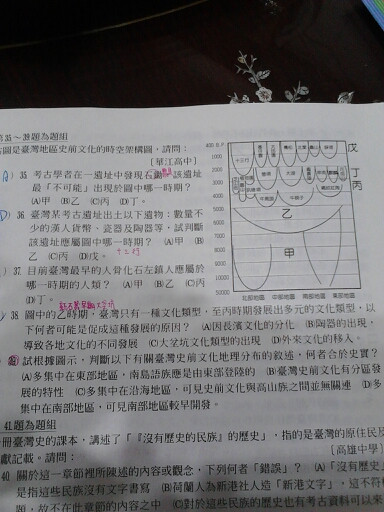 第35～39題為題組
右圖是臺灣地區史前文化的時空架構圖，請問：
〔華江高中〕
35 考古學者在一遺址中發現石鋤，該遺址
最「不可能」出現於圖中哪一時期？
(A)甲 (B)乙 (C)丙 (D)丁。
36 臺灣某考古遺址出土以下遺物：數量不
少的漢人貨幣、瓷器及陶器等，試判斷
該遺址應屬圖中哪一時期？ (A)甲 (B)
乙 (C)丙 (D)戊。
十三行
37 目前臺灣最早的人骨化石左鎮人應屬於
哪一時期的人類？ (A)甲 (B)乙 (C)丙
(D)丁。
38 圖中的乙時期，臺灣只有一種文化類型，至丙時期發展出多元的文化類型，以
下何者可能是促成這種發展的原因？ (A)因長濱文化的分化 (B)陶器的出現，
導致各地文化的不同發展 (C)大坌坑文化類型的出現 (D)外來文化的移入。
試根據圖示，判斷以下有關臺灣史前文化地理分布的敘述，何者合於史實？
(A)多集中在東部地區，南島語族應是由東部登陸的 (B)臺灣史前文化有分區發
展的特性 (C)多集中在沿海地區，可見史前文化與高山族之間並無關連 (D)多
集中在南部地區，可見南部地區較早開發。
41題為題組
冊臺灣史的課本，講述了「『沒有歷史的民族』的歷史」，指的是臺灣的原住民及
獻記載。請問：
〔高雄中學〕
40 關於這一章節裡所陳述的內容或觀念，下列何者「錯誤」？ (A)「沒有歷史」
是指這些民族沒有文字書寫 (B)荷蘭人為新港社人造「新港文字」，這不符
題，故不在此章節的內容之中 (C)對於這些民族歷史也有考古資料可以來
戊
丁
丙
乙
甲
1000
2000
3000
4000
5000
6000
7000
8000
9000
10000
50000
十三行
北部地區 中部地區 南部地區 東部地區